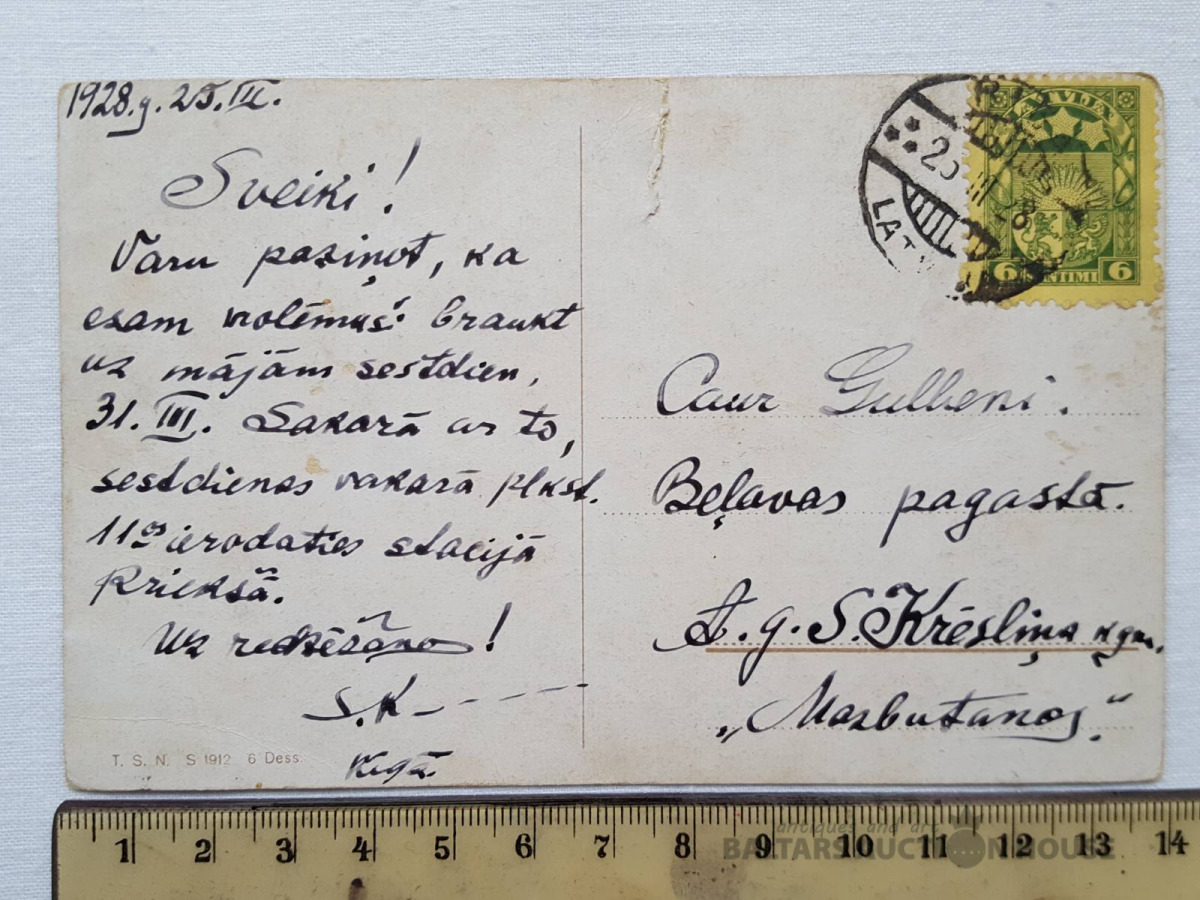 1928.g. 25.III.
Sveiki!
Varu paziņot, ka
esam nolēmuši braukt
uz mājām sestdien,
31. III. Sakarā ar to,
sestdienas vakarā plkst.
11os ierodaties stacijā
Priekšā.
Uz redzēšano!
S.K.
Rīgā.
T. S. N. S 1912 6 Dess.
LATVIJA
28
LAT
6 SANTIMI 6
Caur Gulbeni.
Beļavas pagastā.
A. g. S. Krēsliņa kgm.
„Mazbutanos"
1 2 3 4 5 6 7 8 9 10 11 12 13 14
antiques and art
BALTARS AUCTION HOUSE